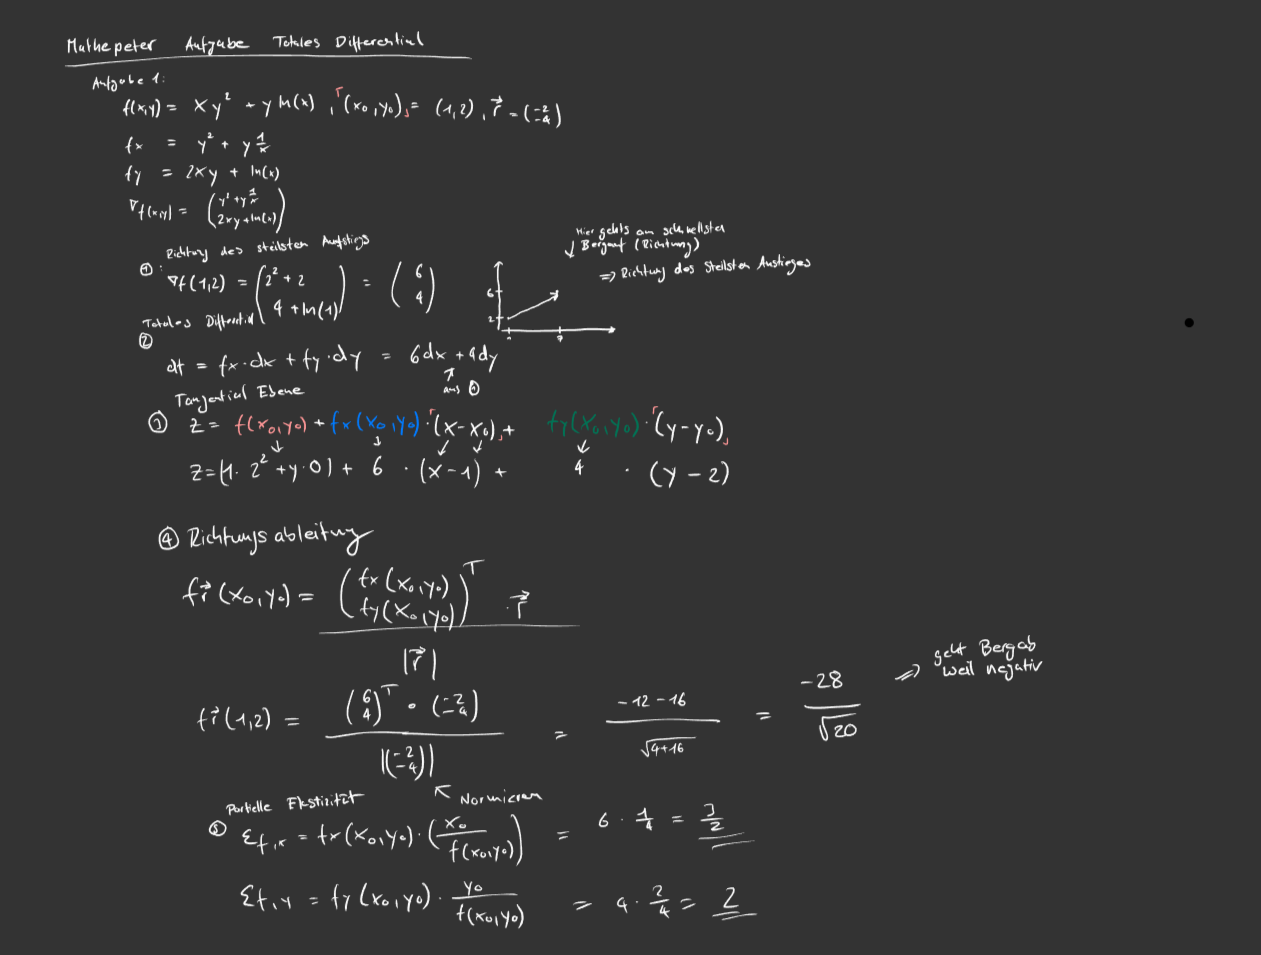 Mathepeter Aufgabe Totales Differential
Aufgabe 1:
f(x,y) = xy² + y ln(x) , (x₀,y₀) = (1,2) , r⃗ = (-2 -4)
fx = y² + y 1/x
fy = 2xy + ln(x)
∇f(x,y) = (y²+y 1/x 2xy+ln(x))
Richtung des steilsten Aufstiegs
①: ∇f(1,2) = (2²+2 4+ln(1)) = (6 4)
6
2
Hier gehts am schnellsten
Bergauf (Richtung)
⇒ Richtung des Steilsten Anstieges
Totales Differential
②
df = fx·dx + fy·dy = 6dx + 4dy
aus ①
Tangential Ebene
③ z = f(x₀,y₀) + fx(x₀,y₀)·(x-x₀) + fy(x₀,y₀)·(y-y₀)
z = (1·2²+y·0) + 6 · (x-1) + 4 · (y-2)
④ Richtungsableitung
fr⃗(x₀,y₀) = (fx(x₀,y₀) fy(x₀,y₀))ᵀ · r⃗
|r⃗|
fr⃗(1,2) = (6 4)ᵀ • (-2 -4) / |(-2 -4)| = -12-16 / √4+16 = -28 / √20
⇒ geht Bergab
weil negativ
Normieren
Partielle Elastizität
⑤ Ɛf,x = fx(x₀,y₀)·(x₀/f(x₀,y₀)) = 6 · 1/4 = 3/2
Ɛf,y = fy(x₀,y₀)· y₀/f(x₀,y₀) = 4 · 2/4 = 2